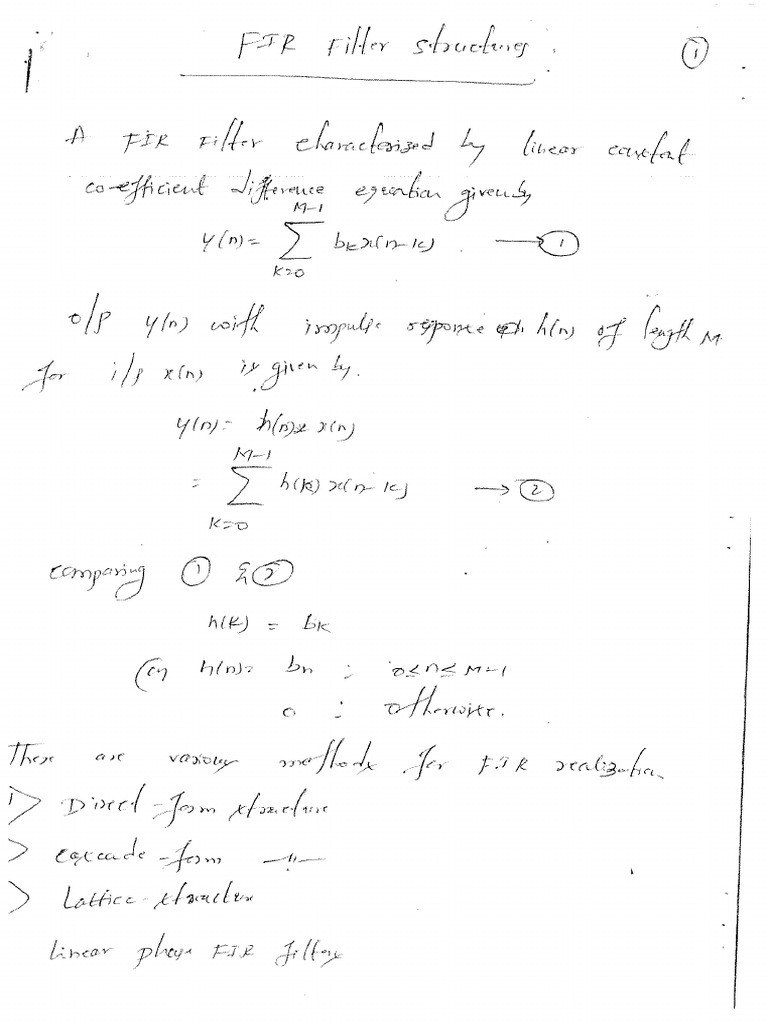 FIR Filter structures.
①
A FIR Filter characterized by linear constant
co-efficient difference equation given by
y(n) = Σ_{k=0}^{M-1} b_k x(n-k) . → ①
o/p y(n) with impulse response h(n) of length M
for i/p x(n) is given by.
y(n) = h(n) * x(n)
= Σ_{k=0}^{M-1} h(k) x(n-k) → ②
comparing ① & ②
h(k) = b_k
(or) h(n) = b_n ; 0≤n≤M-1
0 ; otherwise.
There are various methods for FIR realization
1> Direct-form structure
> cascade-form —"—
> Lattice-structure
linear phase FIR filters